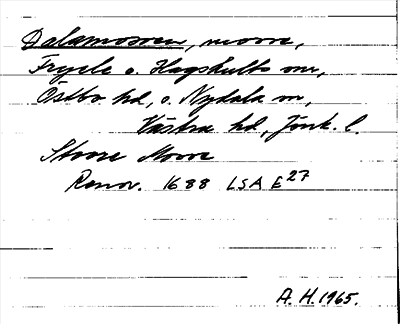 Dalamossen, mosse,
Fryele o. Hagshults snr,
Östbo hd, o. Nydala sn,
Västra hd, Jönk. l.
Stoore Mosse
Renov. 1688 LSA E27
A. H. 1965.